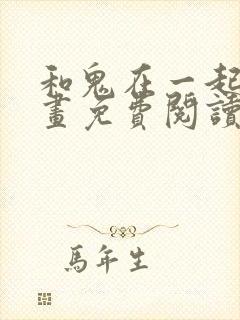 和鬼在一起
畫免費閱讀
馬年生